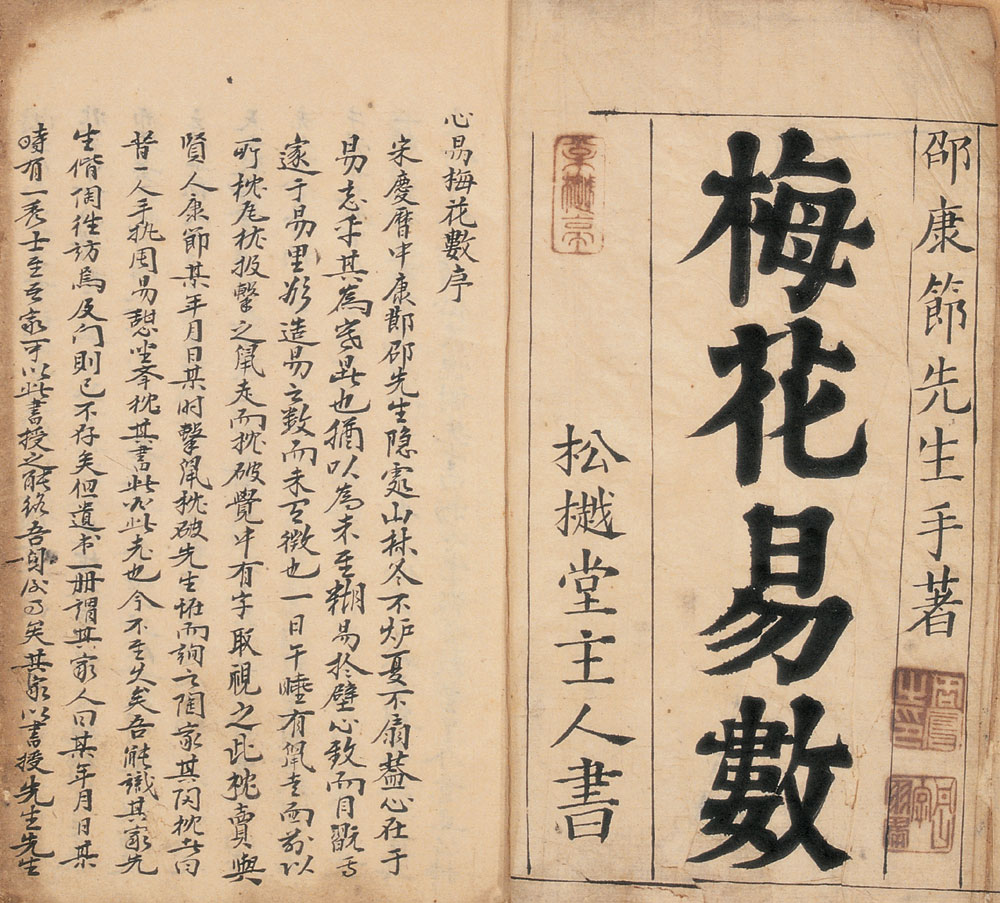 邵康節先生手著
梅花易數
松樾堂主人書
心易梅花數序
宋慶曆中康節邵先生隐處山林冬不炉夏不扇蓋心在于
易忘乎其為寒暑也猶以為未至糊易於壁心致而目翫焉
邃于易里欲造易之數而未有徴也一日午睡有鼠走而前以
所枕瓦枕投擊之鼠走而枕破覺中有字取視之此枕賣與
賢人康節某年月日某时擊鼠枕破先生怪而詢之陶家其閃枕者曰
昔一人手执周易憩坐举枕其書此必此老也今不至久矣吾能識其家先
生偕徃訪焉及门則已不存矣但遺书一册謂其家人曰某年月日某
時有一秀士至吾家可以此書授之能終吾身後事矣其家以書授先生先生